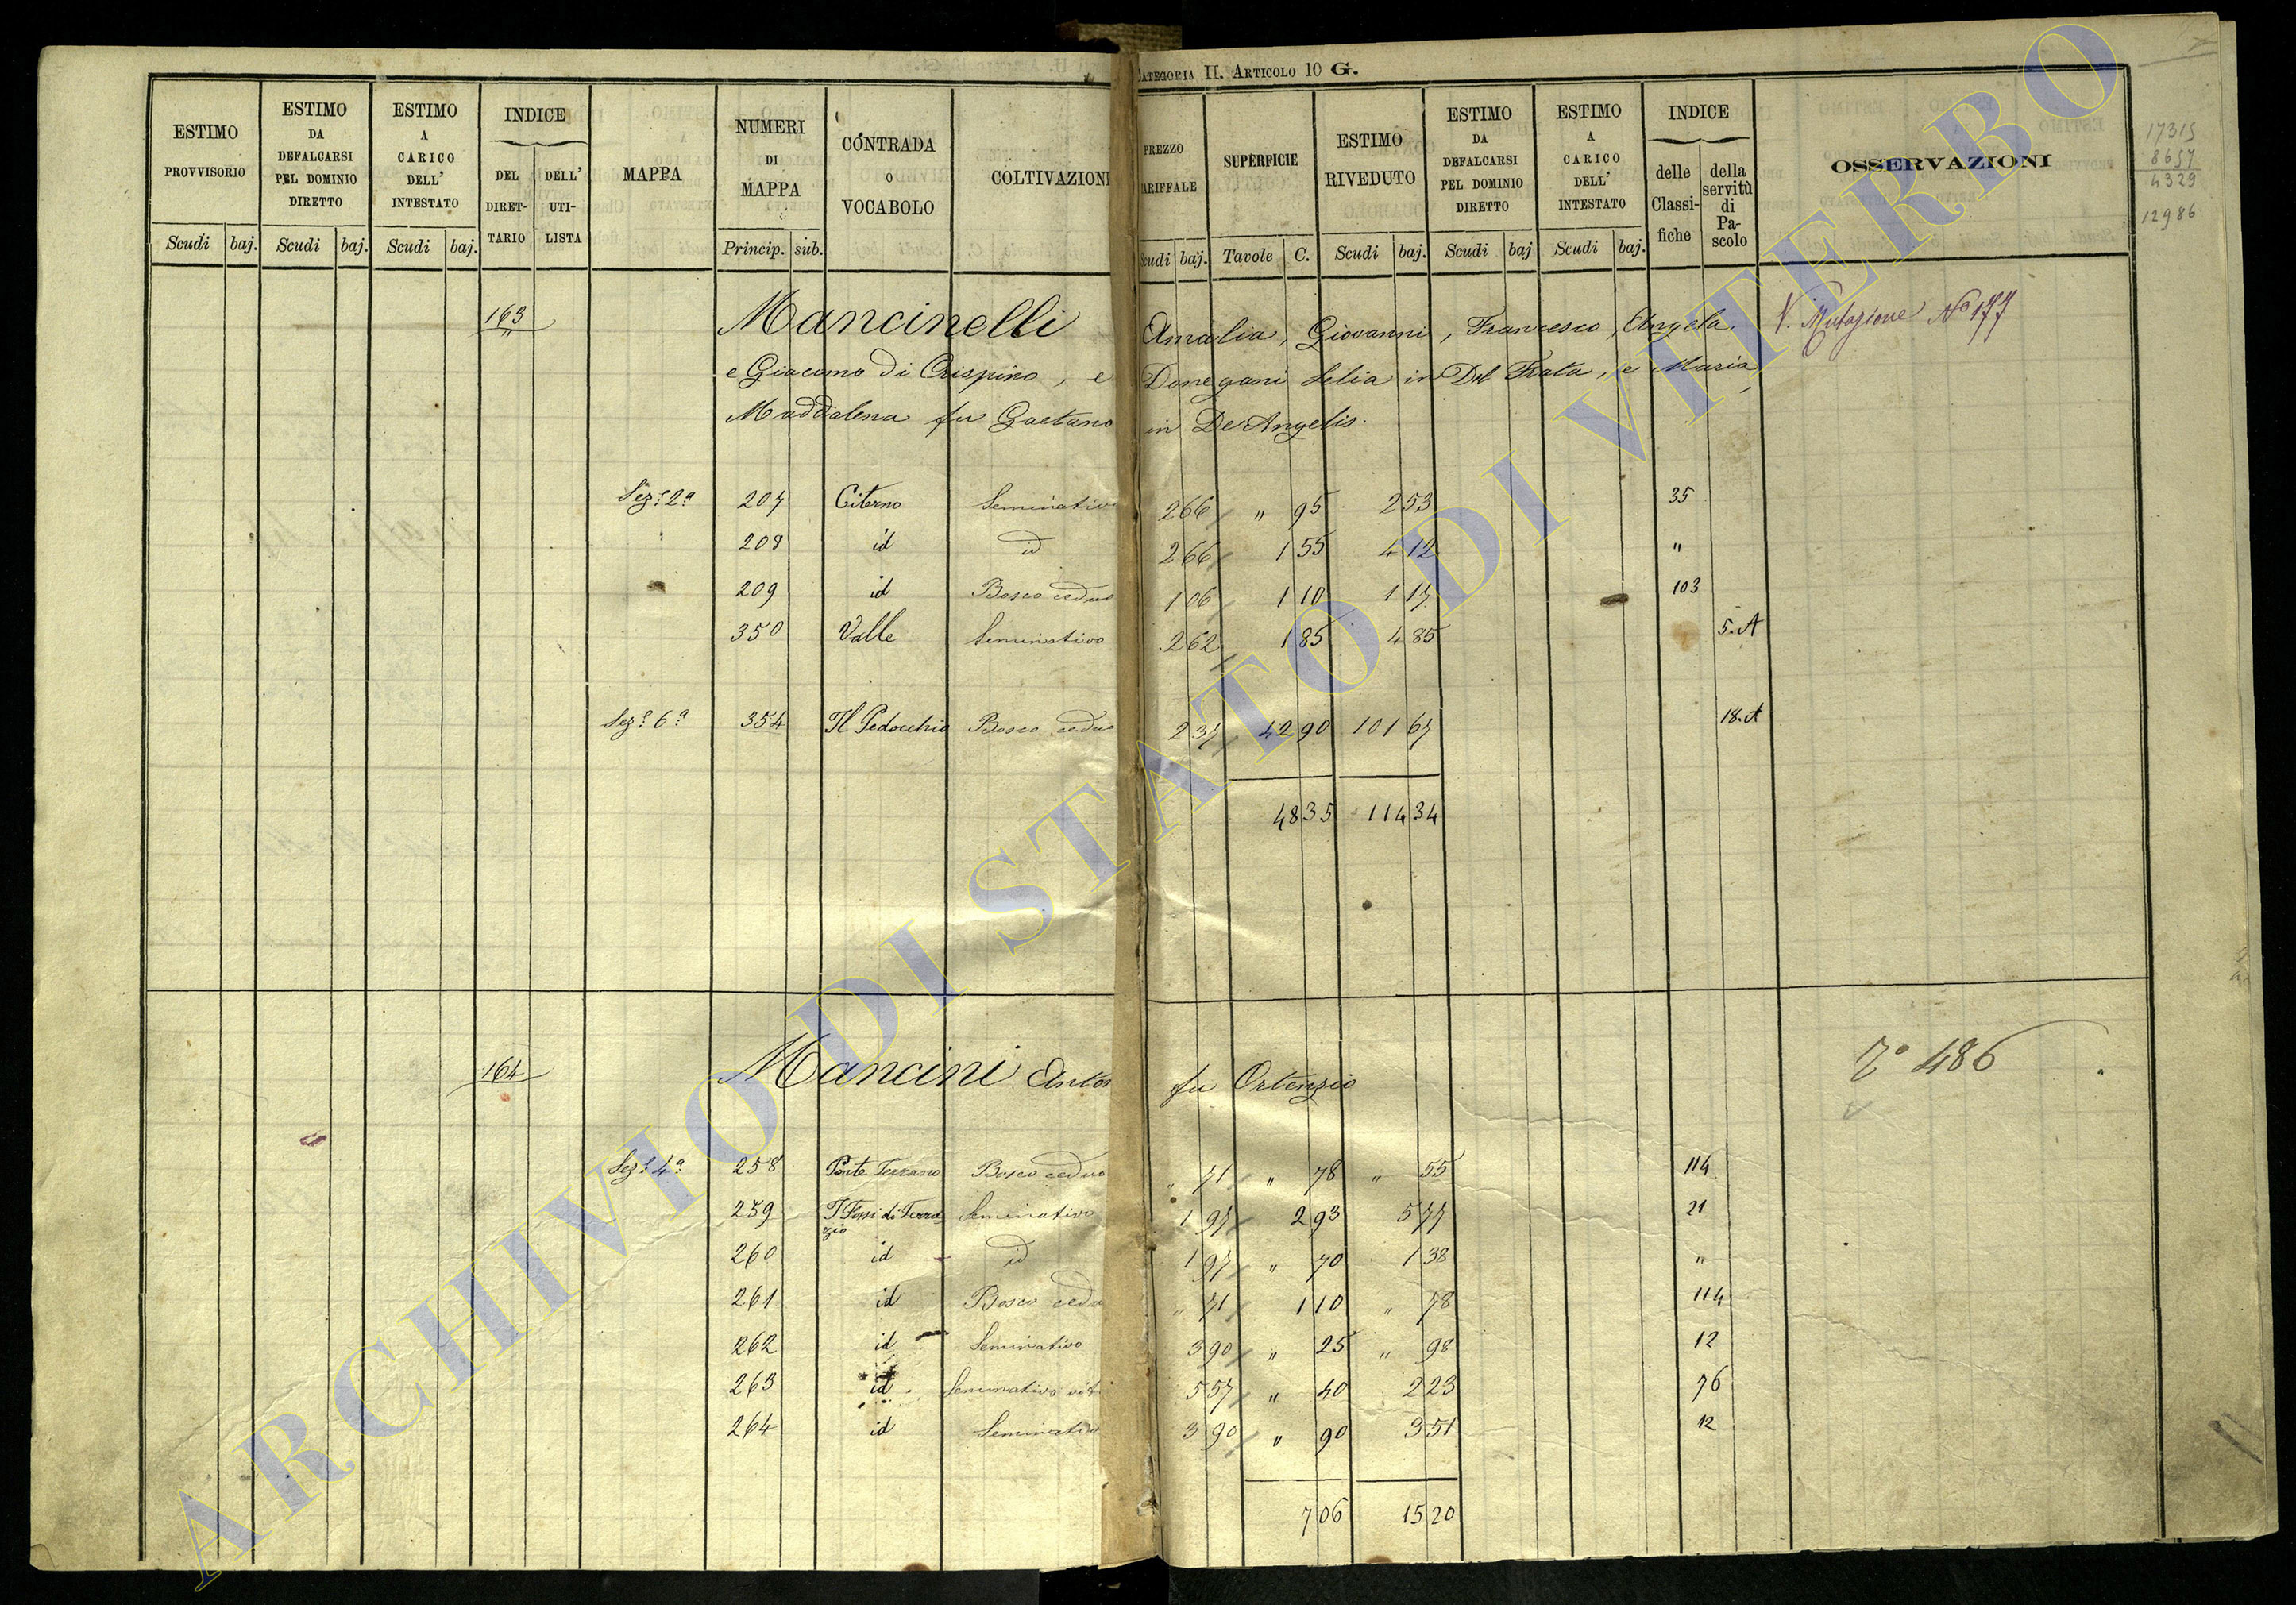 CATEGORIA II. ARTICOLO 10 G.
ESTIMO PROVVISORIO
ESTIMO DA DEFALCARSI PEL DOMINIO DIRETTO
ESTIMO A CARICO DELL' INTESTATO
INDICE
DEL DIRET-TARIO
DELL' UTI-LISTA
MAPPA
NUMERI DI MAPPA
CONTRADA O VOCABOLO
COLTIVAZION
PREZZO ARIFFALE
SUPERFICIE
ESTIMO RIVEDUTO
ESTIMO DA DEFALCARSI PEL DOMINIO DIRETTO
ESTIMO A CARICO DELL' INTESTATO
INDICE
delle Classi-fiche
della servitù di Pa-scolo
OSSERVAZIONI
Scudi baj. Scudi baj. Scudi baj. Princip. sub. cudi baj. Tavole C. Scudi baj. Scudi baj Scudi baj.
17315
8657
4329
12986
163 Mancinelli Amalia, Giovanni, Francesco, Angela, V. Mutazione N.º 177
e Giacomo di Crispino, e Donegani Lelia in Del Frate, e Maria
Maddalena fu Gaetano in De Angelis.
Sez.e 2a 207 Citerno Seminativo 2 66 " 95 2 53 35
208 id id 2 66 1 55 4 12 "
209 id Bosco ceduo 1 06 1 10 1 17 103
350 Valle Seminativo 2 62 1 85 4 85 5.A
Sez.e 6a 354 Il Pedocchio Bosco ceduo 2 37 42 90 101 67 18.A
48 35 114 34
164 Mancini Anton fu Ortenzio 486
Sez.e 4a 258 Ponte Terrano Bosco ceduo " 71 " 78 " 55 114
259 I Fossi di Terra-zio Seminativo 1 97 2 93 5 77 21
260 id id 1 97 " 70 1 38 "
261 id Bosco cedu " 71 1 10 " 78 114
262 id Seminativo 3 90 " 25 " 98 12
263 id Seminativo vit 5 57 " 40 2 23 76
264 id Seminativo 3 90 " 90 3 51 12
7 06 15 20
ARCHIVIO DI STATO DI VITERBO